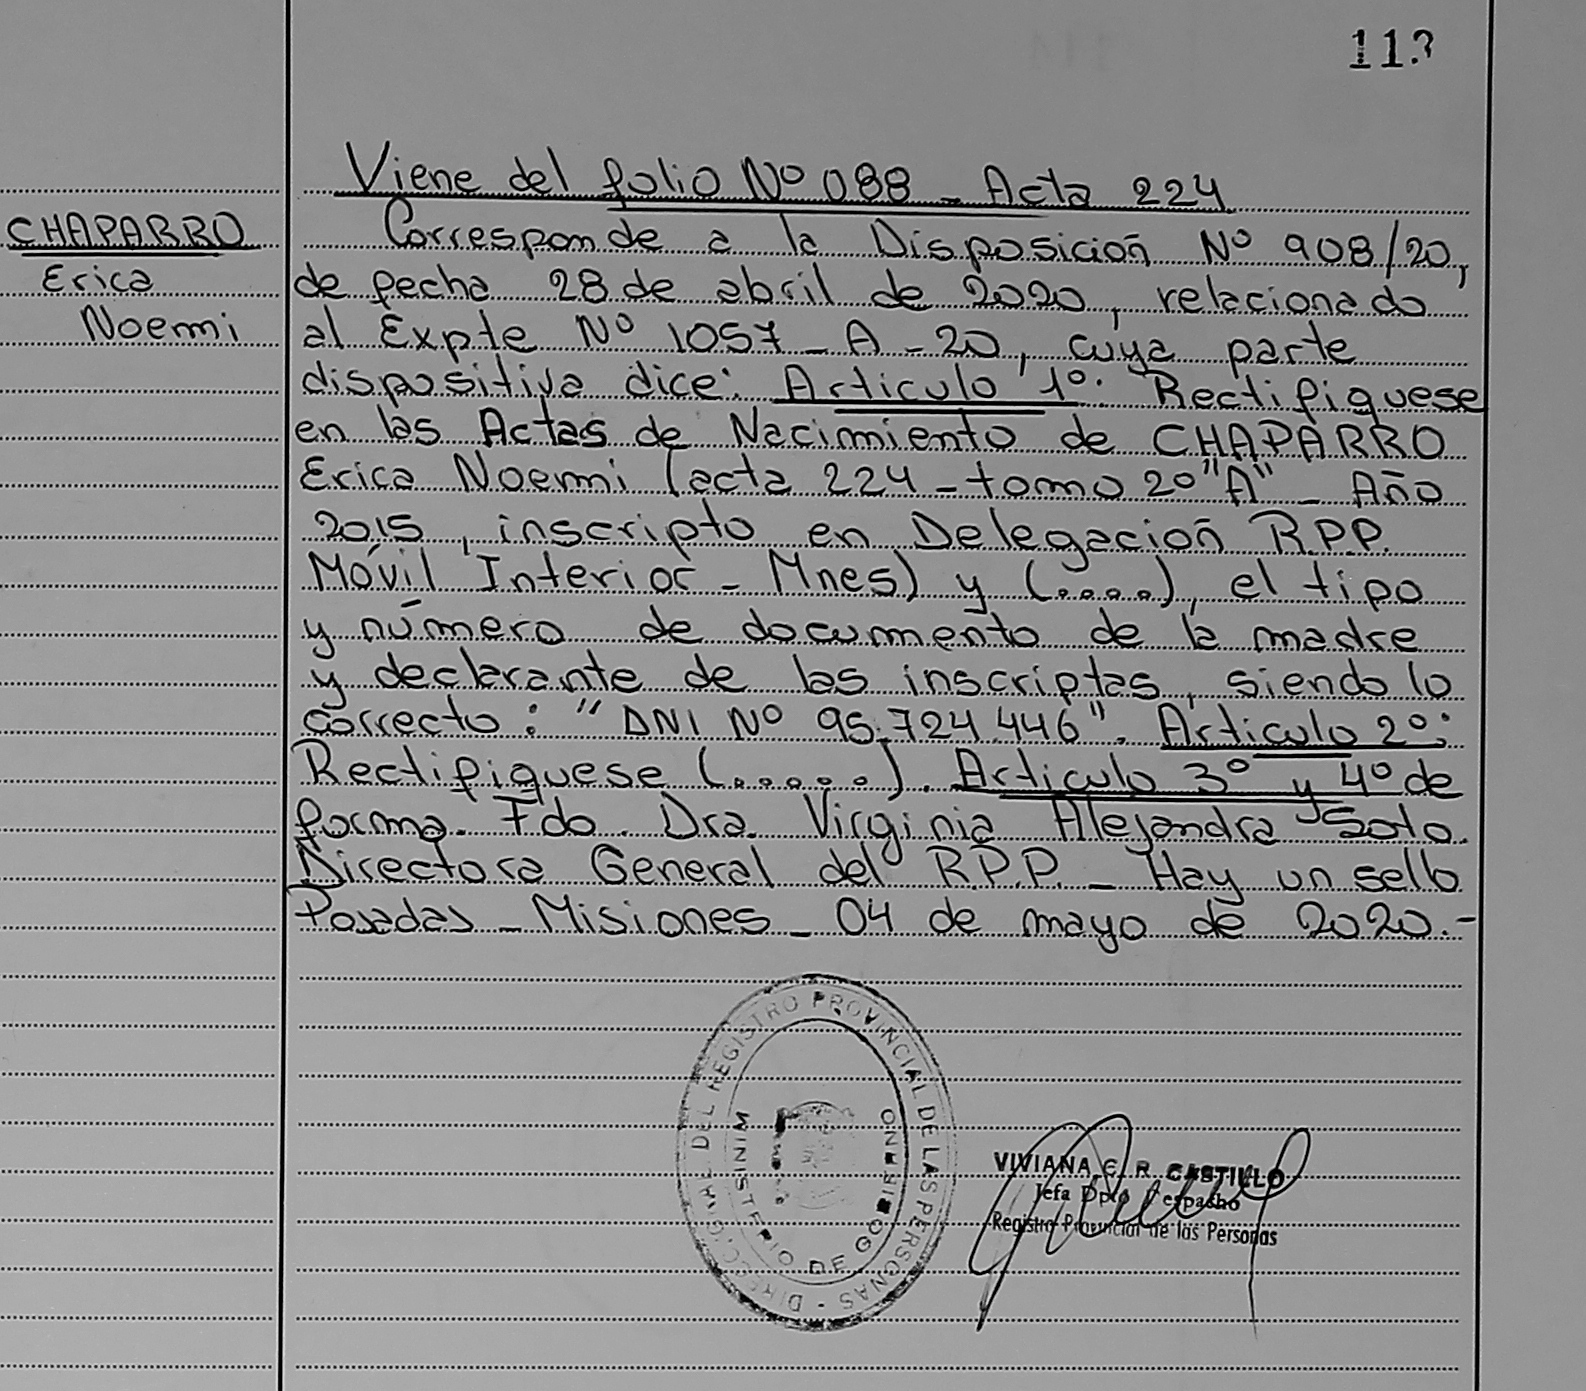 113
Viene del folio Nº 088 - Acta 224
CHAPARRO
Erica
Noemi
Corresponde a la Disposición Nº 908/20,
de fecha 28 de abril de 2020, relacionado
al Expte Nº 1057 - A - 20, cuya parte
dispositiva dice: Articulo 1º: Rectifiquese
en las Actas de Nacimiento de CHAPARRO
Erica Noemi (acta 224 - tomo 2º "A" - Año
2015, inscripto en Delegación R.P.P.
Móvil Interior - Mnes) y (.....), el tipo
y número de documento de la madre
y declarante de las inscriptas, siendo lo
correcto: "DNI Nº 95.724.446". Articulo 2º:
Rectifiquese (......). Articulo 3º y 4º de
forma. Fdo. Dra. Virginia Alejandra Soto.
Directora General del R.P.P. - Hay un sello
Posadas - Misiones - 04 de mayo de 2020.-
DIRECC. GRAL DEL REGISTRO PROVINCIAL DE LAS PERSONAS
MINISTERIO DE GOBIERNO
VIVIANA E. R. CASTILLO
Jefa Dpto Despacho
Registro Provincial de las Personas